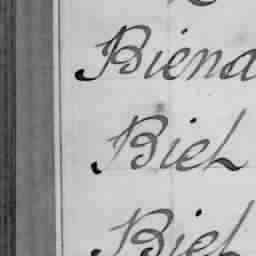 Biena
Biel
Biel